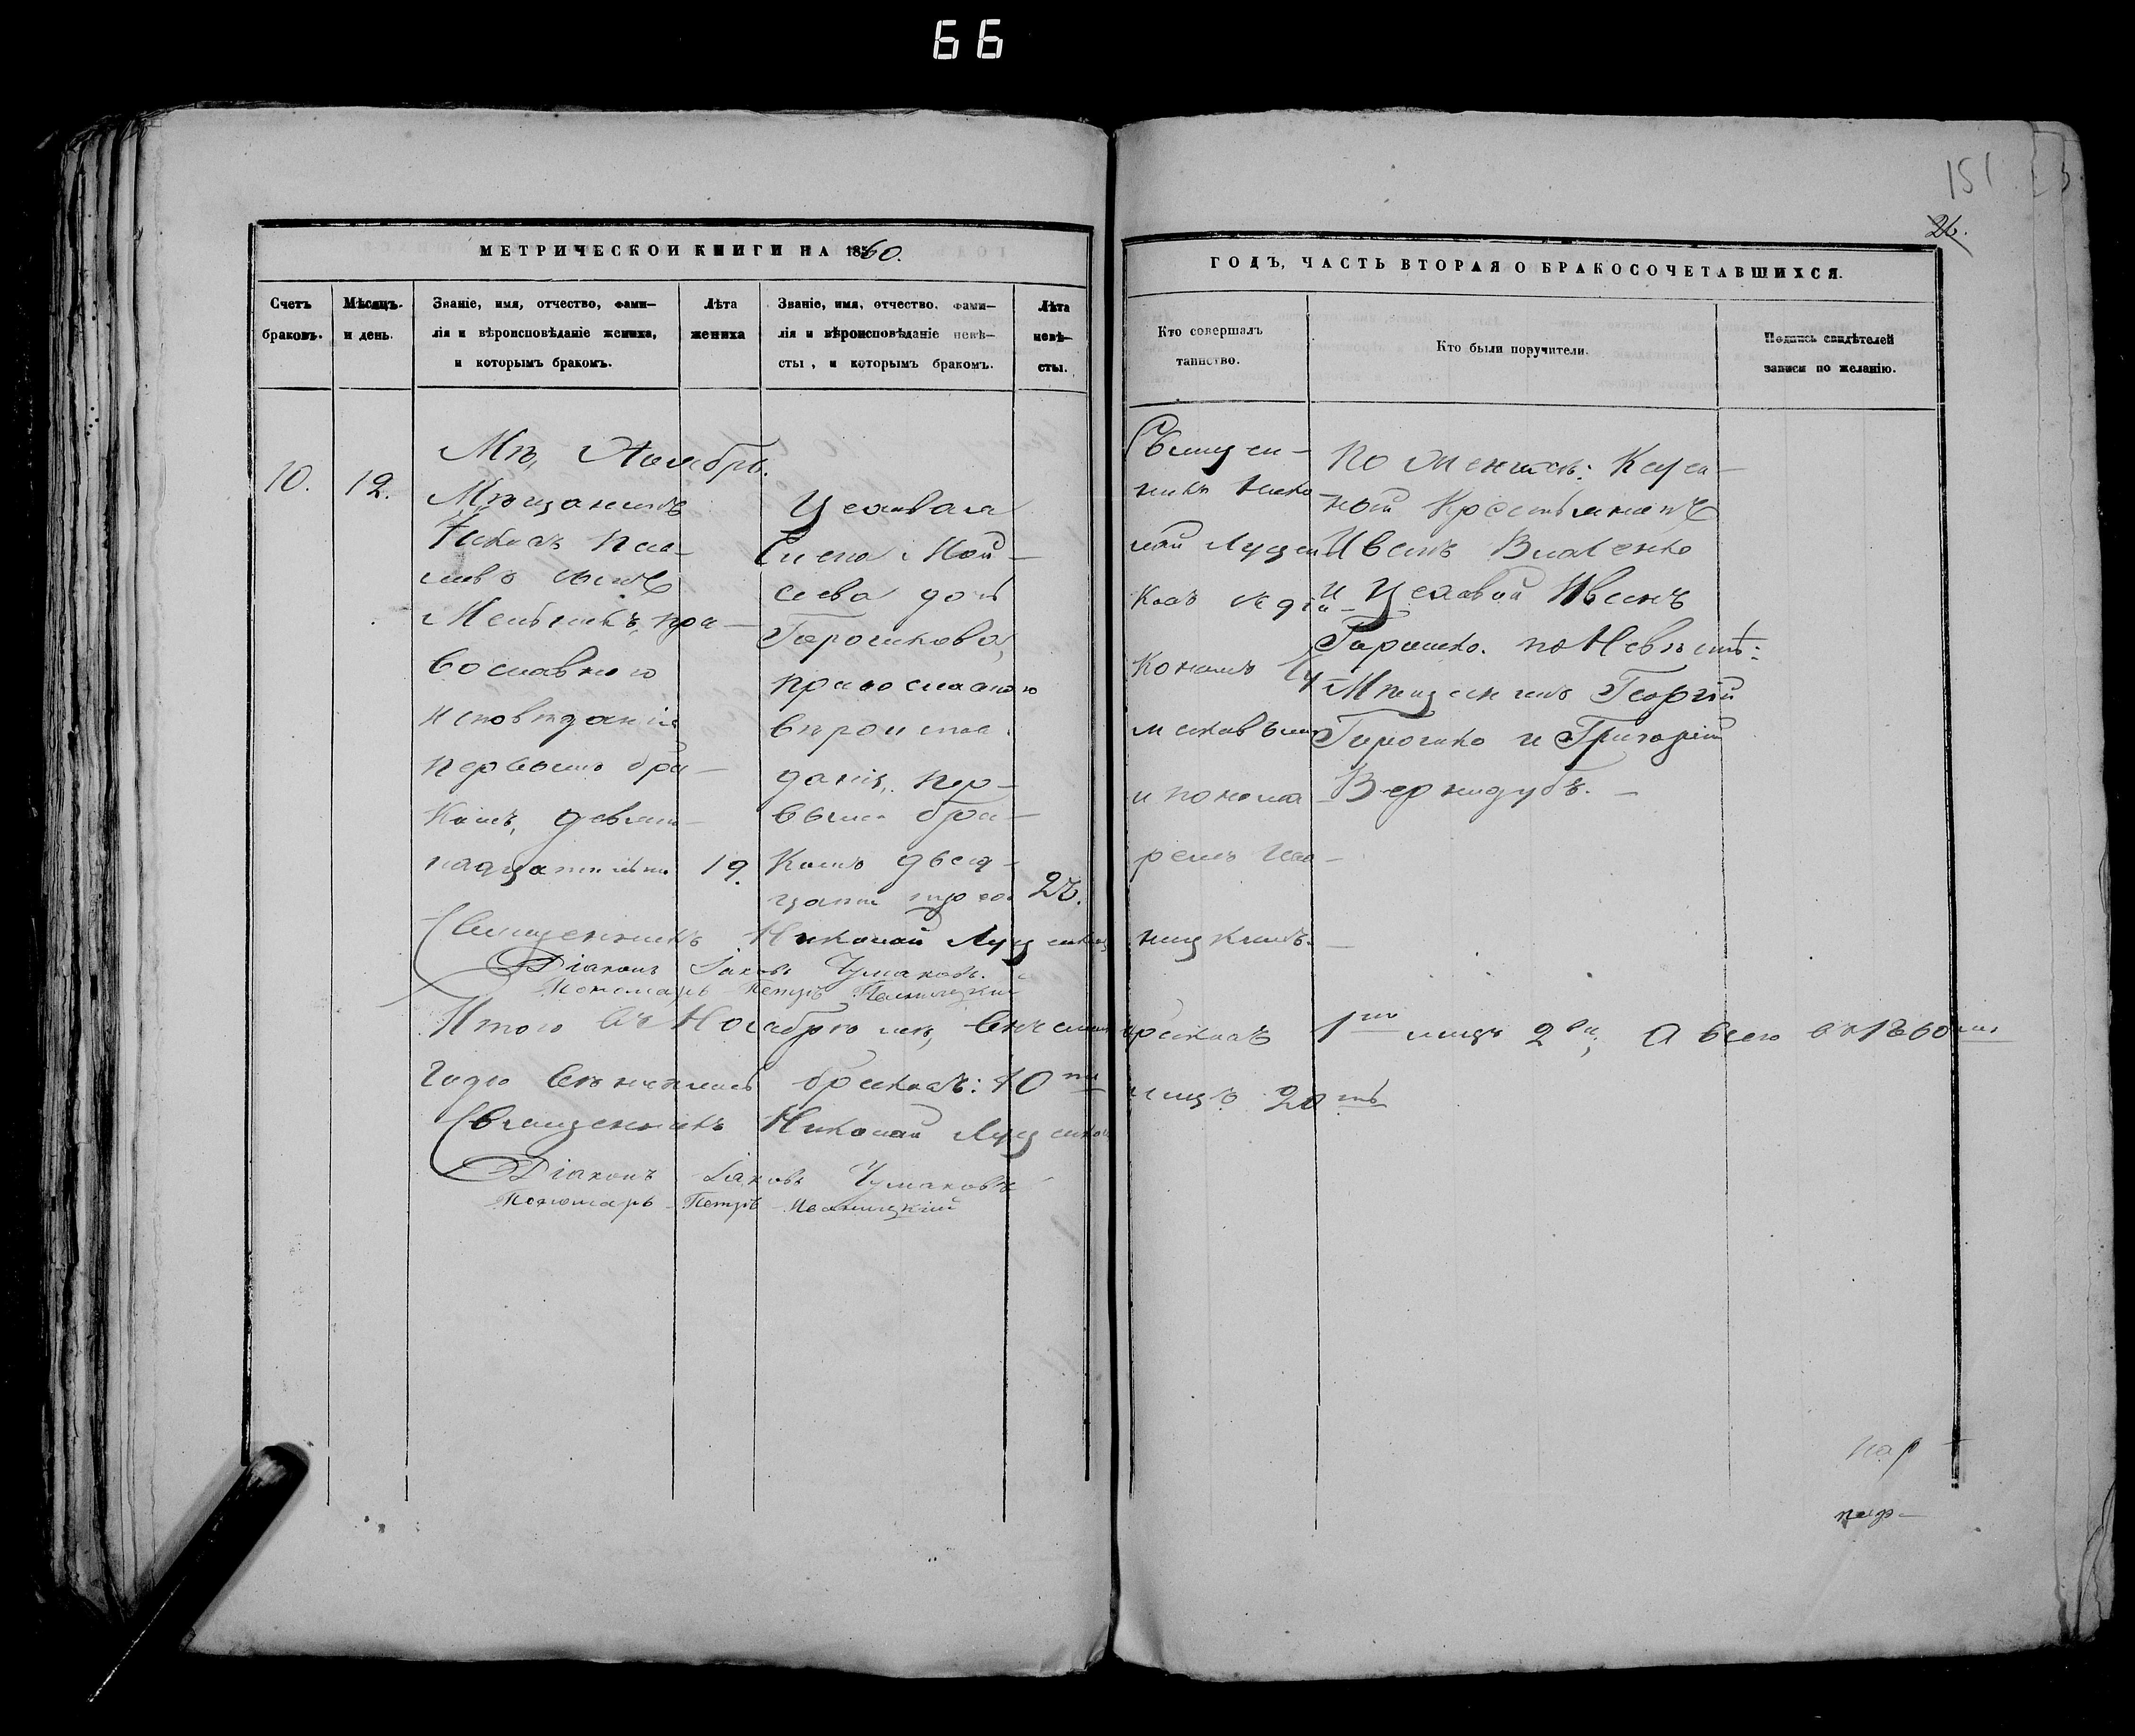 66
151
26.
МЕТРИЧЕСКОЙ КНИГИ НА 1860.
ГОДЪ, ЧАСТЬ ВТОРАЯ О БРАКОСОЧЕТАВШИХСЯ.
Счетъ
браковъ.
Мѣсяцъ
и день.
Званіе, имя, отчество, фами-
лія и вѣроисповѣданіе жениха,
и которымъ бракомъ.
Лѣта
жениха
Званіе, имя, отчество, фами-
лія и вѣроисповѣданіе невѣ-
сты, и которымъ бракомъ.
Лѣта
невѣ-
сты.
Кто совершалъ
таинство.
Кто были поручители.
Подпись свидѣтелей
записи по желанію.
10.
12.
Мц, Ноябрь.
Мѣщанинъ
сынъ
пра-
вославнаго
исповѣданія
первымъ бра-
комъ, девят-
надцати лѣтъ
19.
Елена Мой-
сеева дочь
Горошкова,
православнаго
вѣроиспов
данія, пер-
вымъ бра-
комъ двад-
цати трехъ
23.
Священ-
никъ Нико-
лай Луцен
ковъ съ дія-
кономъ Чу-
маковымъ
и понома-
ремъ Ива-
ницкимъ.
По Женихѣ: Казен-
ной Крестьянинъ
Иванъ Власенко
и Иванъ
Горошко. по Невѣстѣ:
Мѣщанинъ Георгій
Горошко и Григорій
Вернидубъ.
Священникъ Николай Луценковъ
Діаконъ Іаковъ Чумаковъ.
Пономарь Петръ Иваницкій
Итого въ Ноябрѣ мц, вѣнчаны браковъ 1 лицъ 2 а всего въ 1860
Годѣ вѣнчаны браковъ: 10 лицъ 20
Священникъ Николай Луценковъ
Діаконъ Іаковъ Чумаковъ
Пономарь Петръ Иваницкій